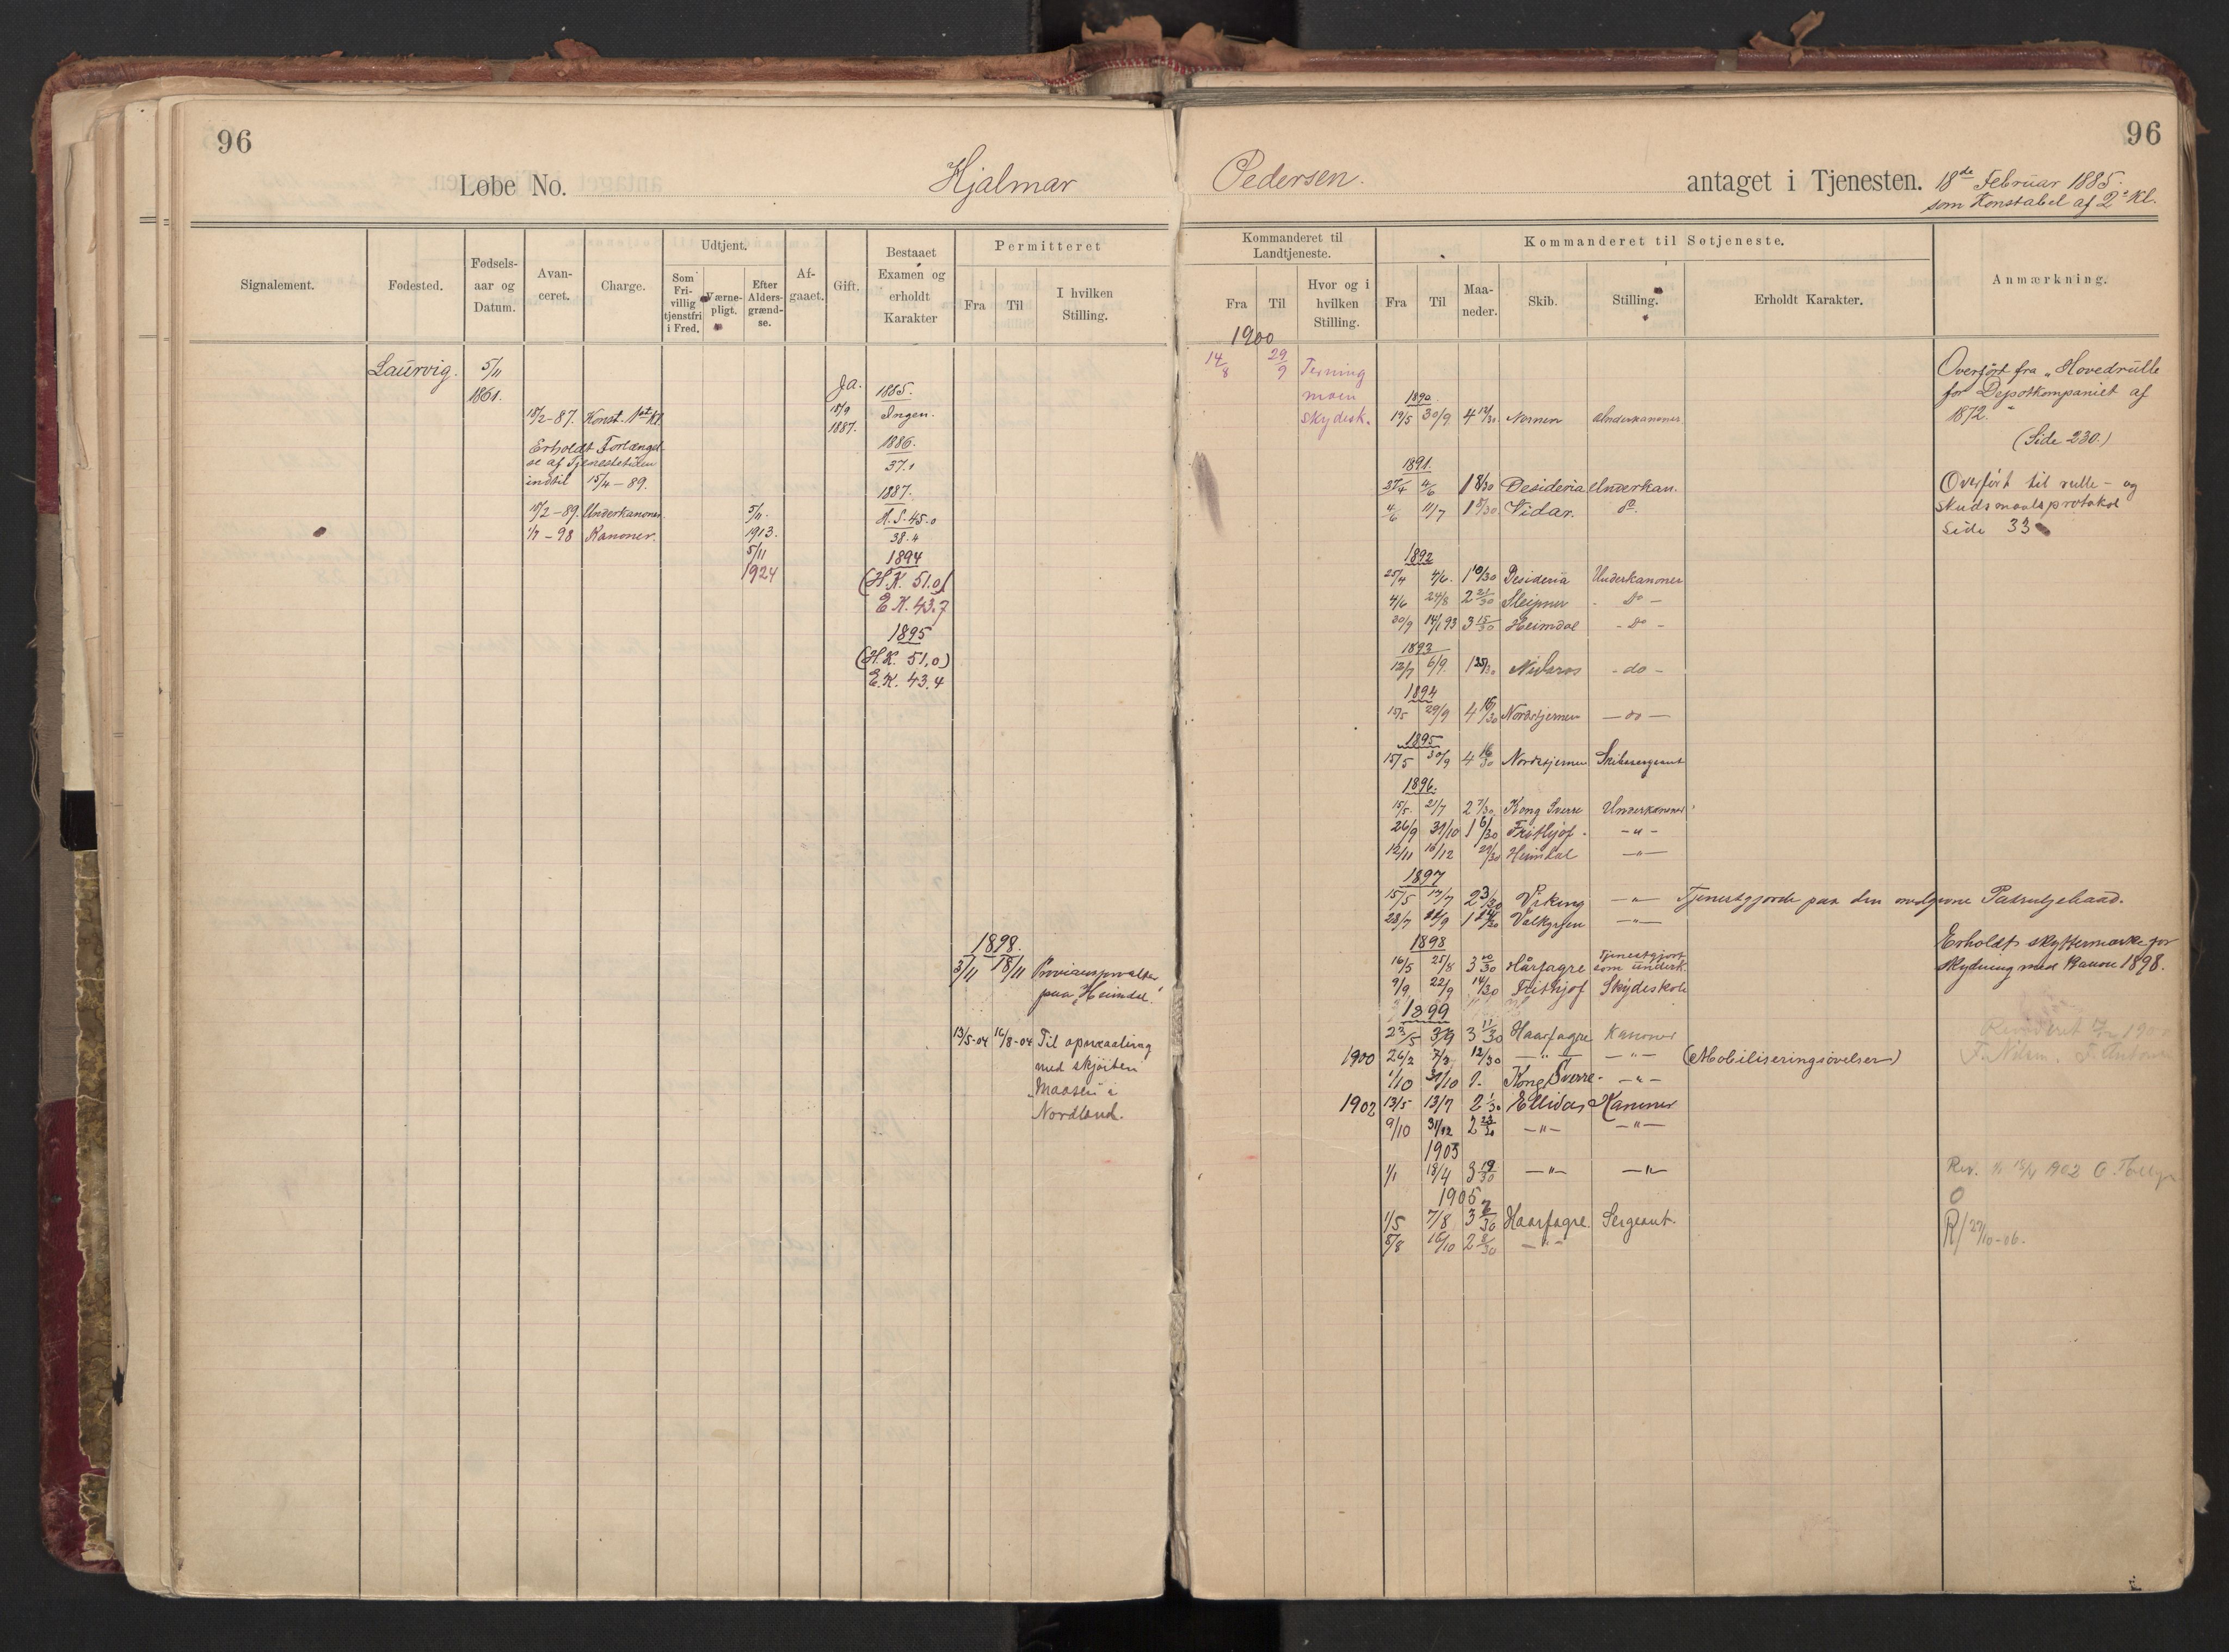 96
Løbe No.
Hjalmar
Signalement.
Fødested.
Fødsels-
aar og
Datum.
Avan-
ceret.
Charge.
Udtjent.
Som
Fri-
villig
tjenstfri
i Fred.
Værne-
pligt.
Efter
Alders-
grænd-
se.
Af-
gaaet.
Gift.
Bestaaet
Examen og
erholdt
Karakter
Permitteret
Fra
Til
I hvilken
Stilling.
Laurvig.
5/11
1861.
18/2-87. Konst. 1st Kl.
Erholdt Forlænget-
se af Tjenestetiden
indtil 15/4-89.
18/2-89. Underkanoner.
1/7-98 Kanoner.
5/11.
1913.
5/11
1924
Ja.
18/9
1887.
1885.
Ingen.
1886.
37.1
1887.
H.S. 45.0
38.4
1894
(H.K. 51.0)
E.K. 43.7
1895
(H.K. 51,0)
E.K. 43.4
1898.
3/11 18/11 Proviantforvalter
paa "Heimdal".
13/5-04 16/8-04 Til opmaaling
med skjöiten
"Maasen" i
Nordland.
96
Pedersen.
antaget i Tjenesten. 18de Februar 1885.
som Konstabel af 2e Kl.
Kommanderet til
Landtjeneste.
Fra
Til
Hvor og i
hvilken
Stilling.
Kommanderet til Søtjeneste.
Fra
Til
Maa-
neder.
Skib.
Stilling.
Erholdt Karakter.
Anmærkning.
1900
14/8 29/9 Terning
moen
Skydesk.
1890.
19/5 30/9 4 12/30 Nornen Underkanoner
1891.
27/4 4/6 1 8/30 Desideria Underkan.
4/6 11/7 1 8/30 Vidar. do.
1892
25/4 4/6. 1 10/30 Desideria Underkanoner
4/6 24/8 2 21/30 Sleipner - do -
30/9 14/1 93 3 15/30 Heimdal - do -
1893
12/7 6/9. 1 25/30 Nidaros - do -
1894
15/5 29/9 4 15/30 Nordstjernen - do -
1895
15/5 30/9 4 16/30 Nordstjernen Skibssergeant
1896.
15/5 21/7 2 7/30 Kong Sverre Underkanoner
26/9 31/10 1 6/30 Frithjof - " -
12/11 10/12 29/30 Heimdal - " -
1897
15/5 17/7 2 3/30 Viking - " - Tjenestgjorde paa den medgivne Patruljebaad.
28/7 1 Valkyrjen - " -
1898
16/5 25/8 3 10/30 Hårfagre Tjenestgjort
som underk.
9/9 22/9 14/30 Frithjof Skydeskole
1899
23/5 3/9 3 11/30 Haarfagre Kanoner
1900 26/2 7/3 12/30 - " - - " - (Mobiliseringsøvelser)
1/10 31/10 1. Kong Sverre - " -
1902 13/5 13/7 2 1/30 Ellida Kanoner
9/10 31/12 2 23/30 - " - - " -
1903
1/1 18/4 3 19/30 - " - - " -
1905
1/5 7/8 3 Haarfagre. Sergeant.
8/8 16/10 2 8/30 - " -
Overført fra "Hovedrulle
for Depotkompaniet af
1872."
(Side 230.)
Overført til rulle- og
Skudsmaalsprotokol
Side 33
Erholdt skyttermærke for
skydning med Kanon 1898.
Revideret 1900
F. Nilsen.
Rev. 1902
R/ 27/10-06.